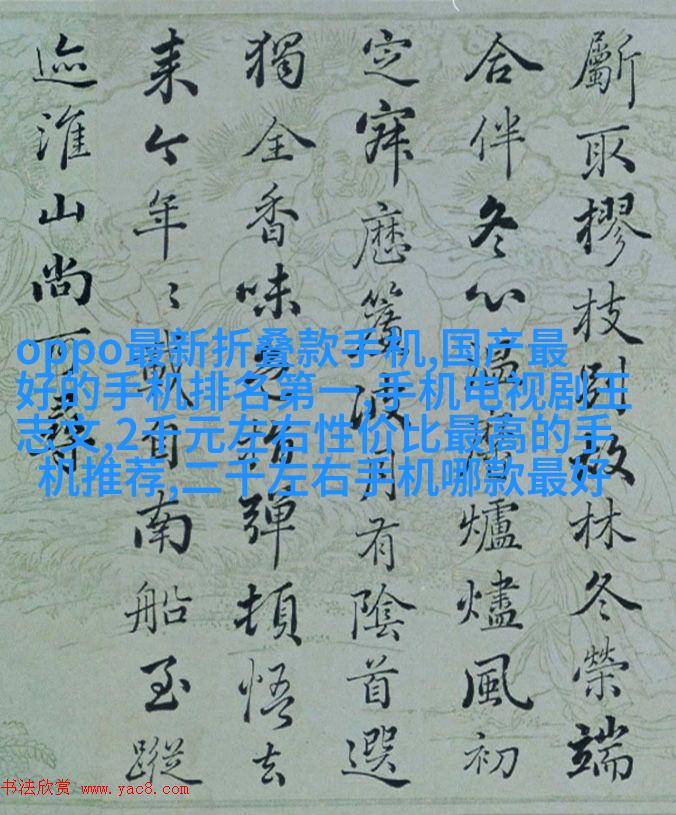 斸取樛枝引故林冬榮端
合伴冬心温黁爐燼風初
定寂歷簾波月有陰首選
獨全香味指彈頓悟去
来今年〻首南船至蹤
迹淮山尚可尋
oppo最新折叠款手机,国产最
好的手机排名第一,手机电视剧王
志文,2千元左右性价比最高的手
机推荐,二千左右手机哪款最好
书法欣赏 www.yac8.com